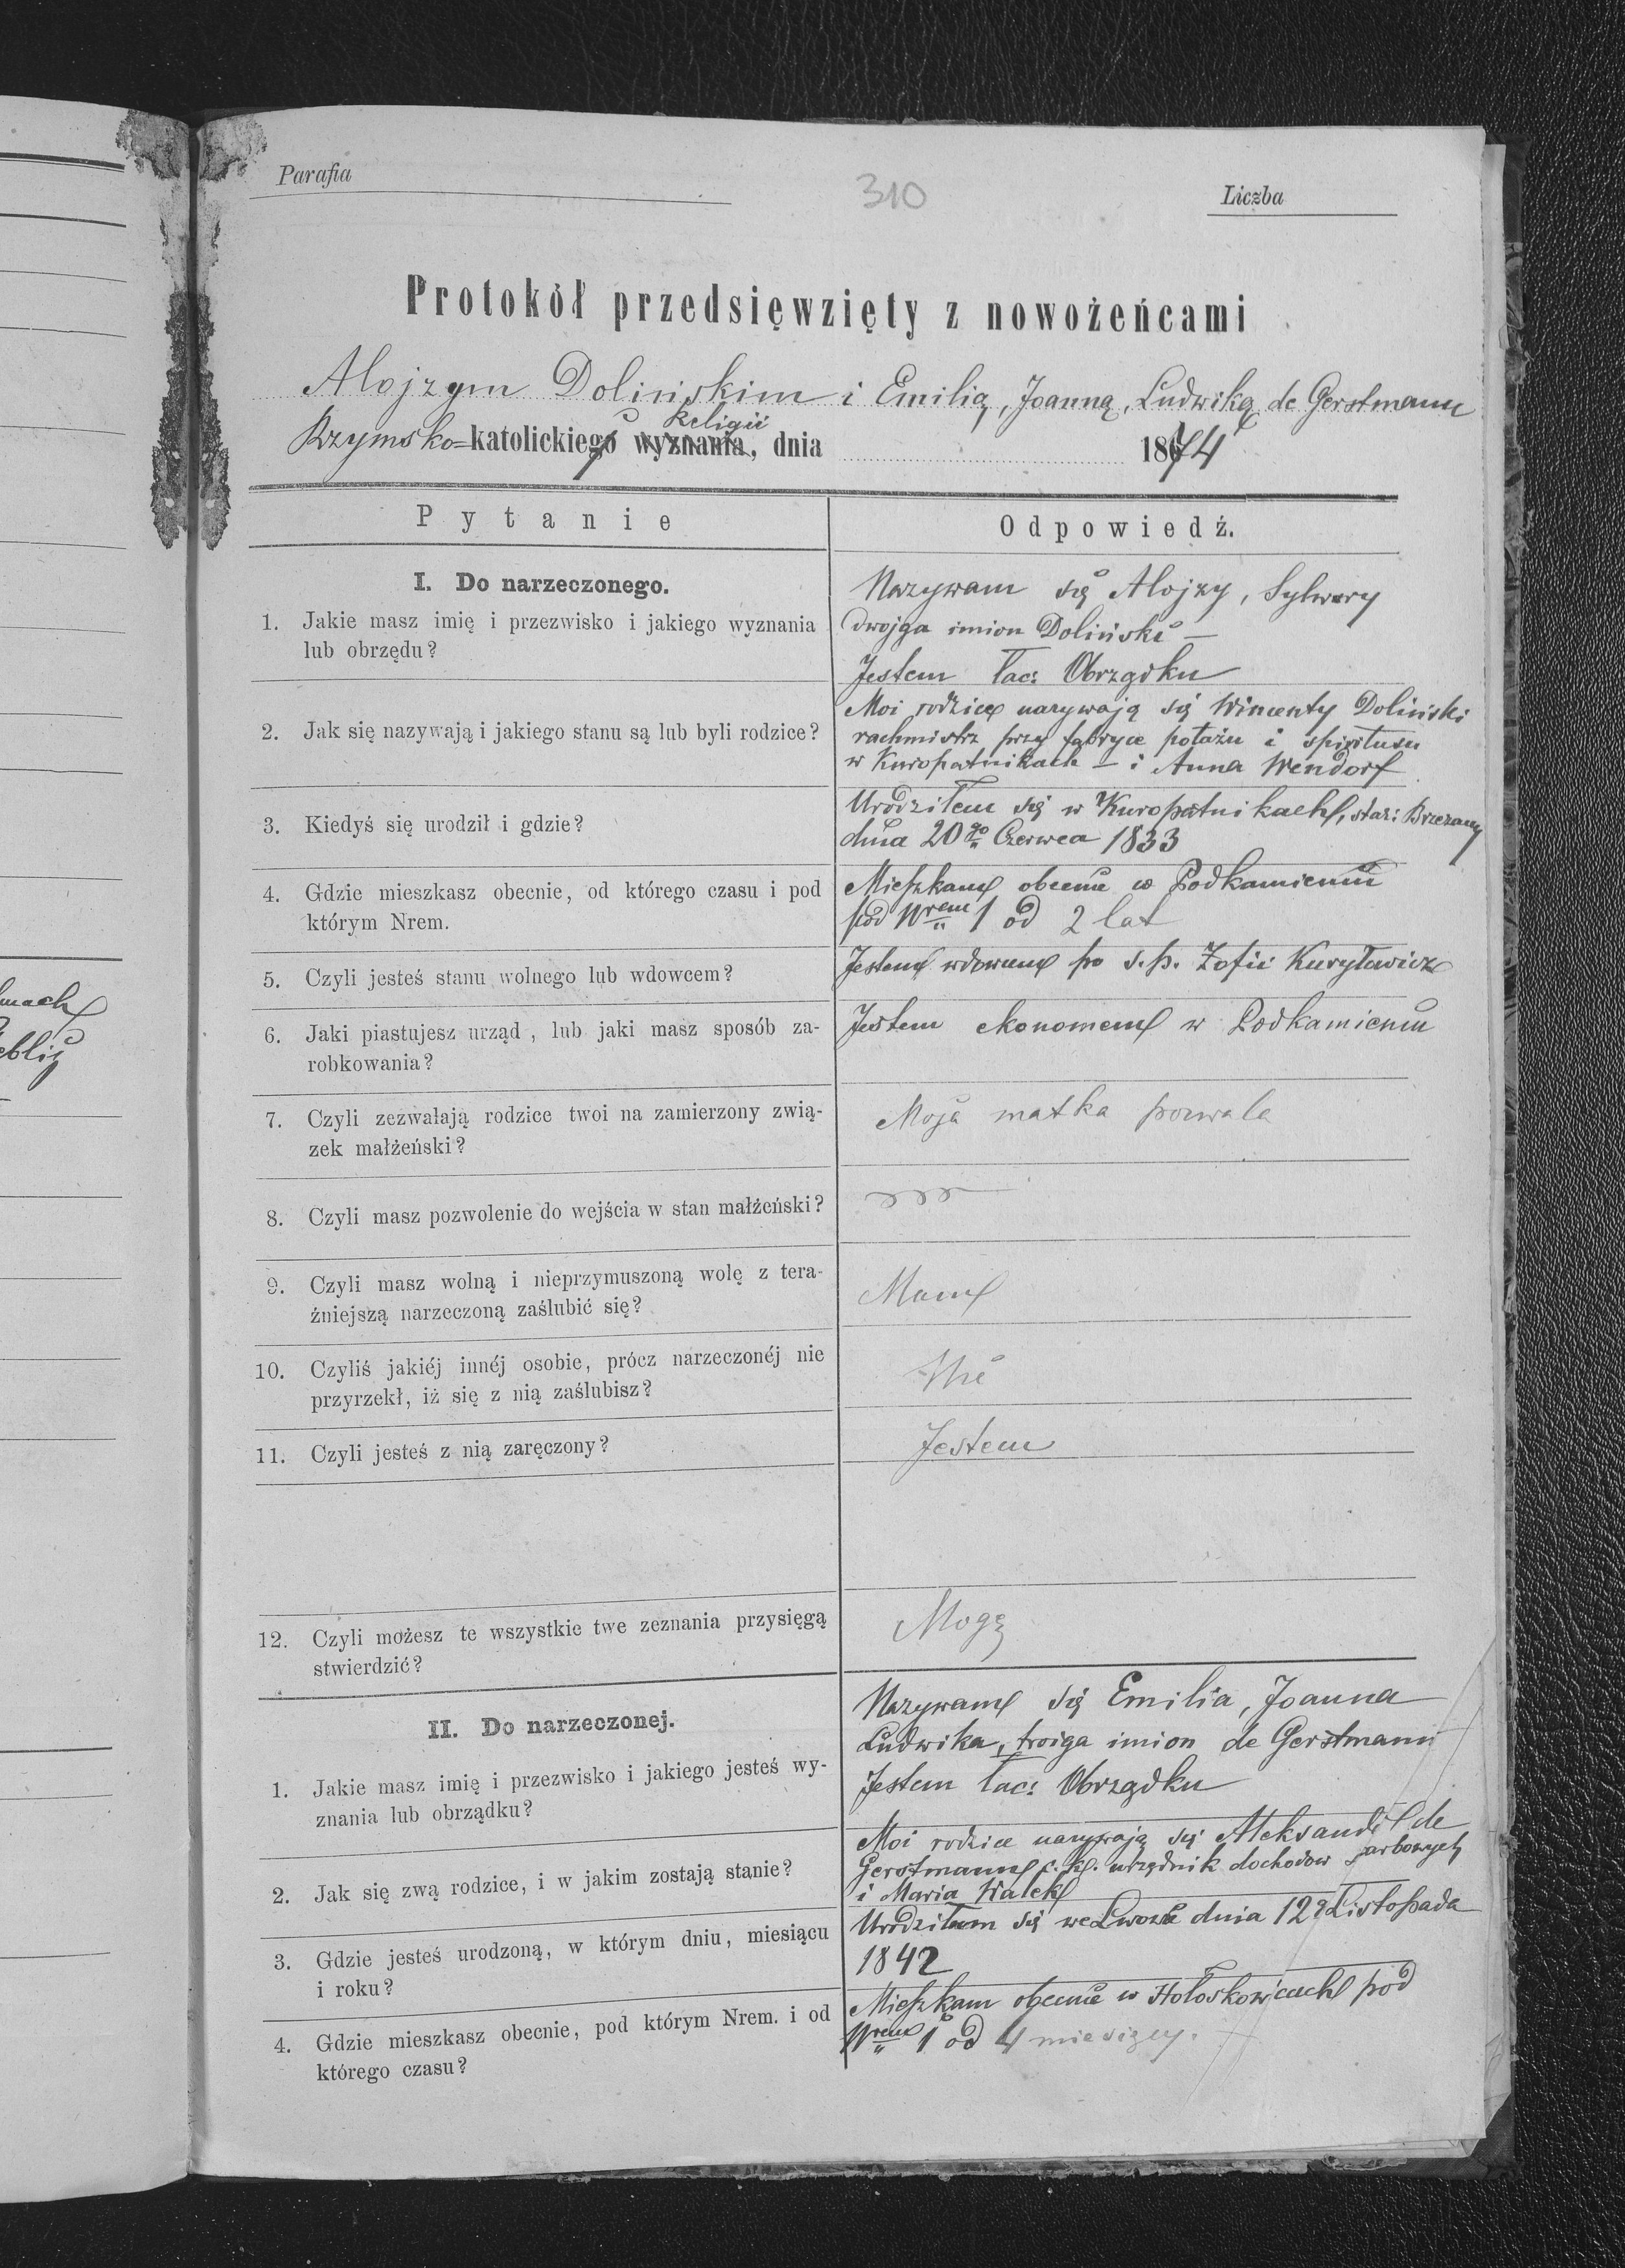 Parafia
310
Liczba
Protokół przedsięwzięty z nowożeńcami
Alojzym Dolińskim i Emilią, Joanną, Ludwiką de Gerstmann
Religii
Rzymsko-katolickiego wyznania, dnia 1874
Pytanie
Odpowiedź.
I. Do narzeczonego.
1. Jakie masz imię i przezwisko i jakiego wyznania
lub obrzędu?
Nazywam się Alojzy, Sylwery
dwojga imion Doliński —
Jestem łac: Obrządku
2. Jak się nazywają i jakiego stanu są lub byli rodzice?
Moi rodzice nazywają się Wincenty Doliński
rachmistrz przy fabryce potażu i spirytusu
w Kuropatnikach — i Anna Wendorf
3. Kiedyś się urodził i gdzie?
Urodziłem się w Kuropatnikach, star: Brzezany
dnia 20go Czerwca 1833
4. Gdzie mieszkasz obecnie, od którego czasu i pod
którym Nrem.
Mieszkam obecnie w Podkamieniu
pod Nrem 1 od 2 lat
5. Czyli jesteś stanu wolnego lub wdowcem?
Jestem wdowcem po ś.p. Zofii Kuryłowicz
6. Jaki piastujesz urząd, lub jaki masz sposób za-
robkowania?
Jestem ekonomem w Podkamieniu
7. Czyli zezwalają rodzice twoi na zamierzony zwią-
zek małżeński?
Moja matka pozwala
8. Czyli masz pozwolenie do wejścia w stan małżeński?
9. Czyli masz wolną i nieprzymuszoną wolę z tera-
źniejszą narzeczoną zaślubić się?
Mam
10. Czyliś jakiéj innéj osobie, prócz narzeczonéj nie
przyrzekł, iż się z nią zaślubisz?
Nie
11. Czyli jesteś z nią zaręczony?
Jestem
12. Czyli możesz te wszystkie twe zeznania przysięgą
stwierdzić?
Mogę
II. Do narzeczonej.
1. Jakie masz imię i przezwisko i jakiego jesteś wy-
znania lub obrządku?
Nazywam się Emilia, Joanna
Ludwika, troiga imion de Gerstmann
Jestem łac: Obrządku
2. Jak się zwą rodzice, i w jakim zostają stanie?
Moi rodzice nazywają się Aleksander de
Gerstmann c. k. urzędnik dochodow skarbowych
i Maria Walek
3. Gdzie jesteś urodzoną, w którym dniu, miesiącu
i roku?
Urodziłam się we Lwowie dnia 12go Listopada
1842
4. Gdzie mieszkasz obecnie, pod którym Nrem. i od
którego czasu?
Mieszkam obecnie w Hołoskowicach pod
Nrem 1 od 4 miesięcy.